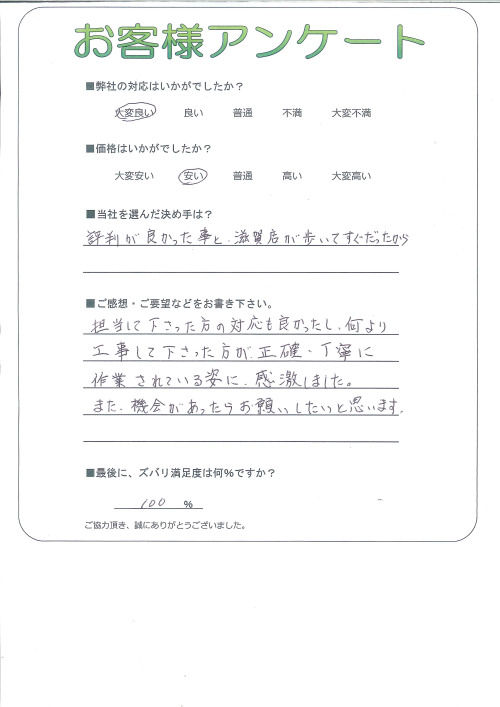 お客様アンケート
■弊社の対応はいかがでしたか？
大変良い 良い 普通 不満 大変不満
■価格はいかがでしたか？
大変安い 安い 普通 高い 大変高い
■当社を選んだ決め手は？
評判が良かった事と、滋賀店が歩いてすぐだったから
■ご感想・ご要望などをお書き下さい。
担当して下さった方の対応も良かったし、何より
工事して下さった方が、正確・丁寧に
作業されている姿に、感激しました。
また、機会があったらお願いしたいと思います。
■最後に、ズバリ満足度は何%ですか？
100 %
ご協力頂き、誠にありがとうございました。